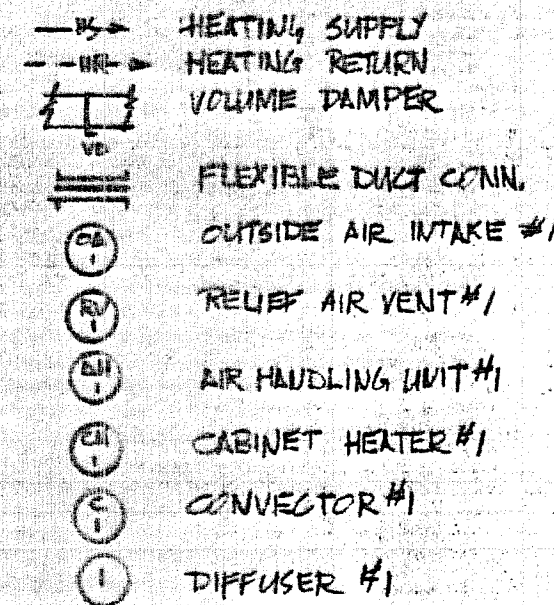 HS HEATING SUPPLY
HR HEATING RETURN
VOLUME DAMPER
VD
FLEXIBLE DUCT CONN.
OA 1 OUTSIDE AIR INTAKE #1
RV 1 RELIEF AIR VENT #1
AH 1 AIR HANDLING UNIT #1
CH 1 CABINET HEATER #1
C 1 CONVECTOR #1
1 DIFFUSER #1